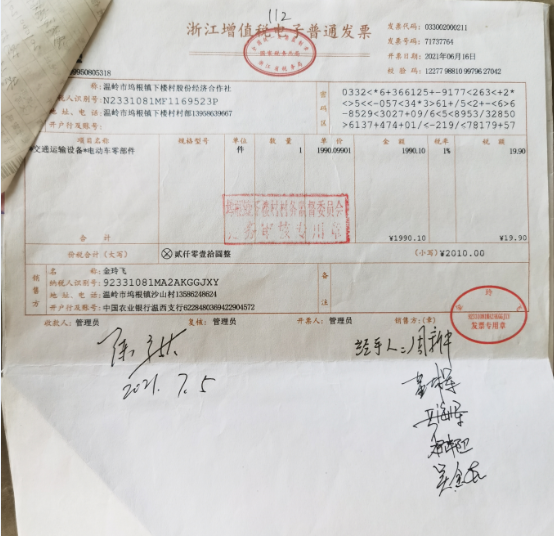 112
浙江增值税电子普通发票
发票代码: 033002000211
发票号码: 71737764
开票日期: 2021年06月16日
校验码: 12277 98810 99796 27042
9950805318
名称: 温岭市坞根镇下楼村股份经济合作社
纳税人识别号: N2331081MF1169523P
地址、电话: 温岭市坞根镇下楼村村部13958639667
开户行及账号:
密码区
0332<*6+366125+-9177<263<+2*
<>5<<-057<34*3>61+/5<2+-<6>6
-8529<3027+09/6<5<8953/32850
>6137+474+01/<-219/<78179+57
项目名称 规格型号 单位 数量 单价 金额 税率 税额
*交通运输设备*电动车零部件 件 1 1990.09901 1990.10 1% 19.90
合计 ¥1990.10 ¥19.90
价税合计(大写) ⊗贰仟零壹拾圆整 (小写)¥2010.00
销售方
名称: 金玲飞
纳税人识别号: 92331081MA2AKGGJXY
地址、电话: 温岭市坞根镇沙山村13586248624
开户行及账号: 中国农业银行温西支行6228480369422904572
备注
收款人: 管理员 复核: 管理员 开票人: 管理员 销售方:(章)
发票专用章
2021.7.5
经手人:周新中